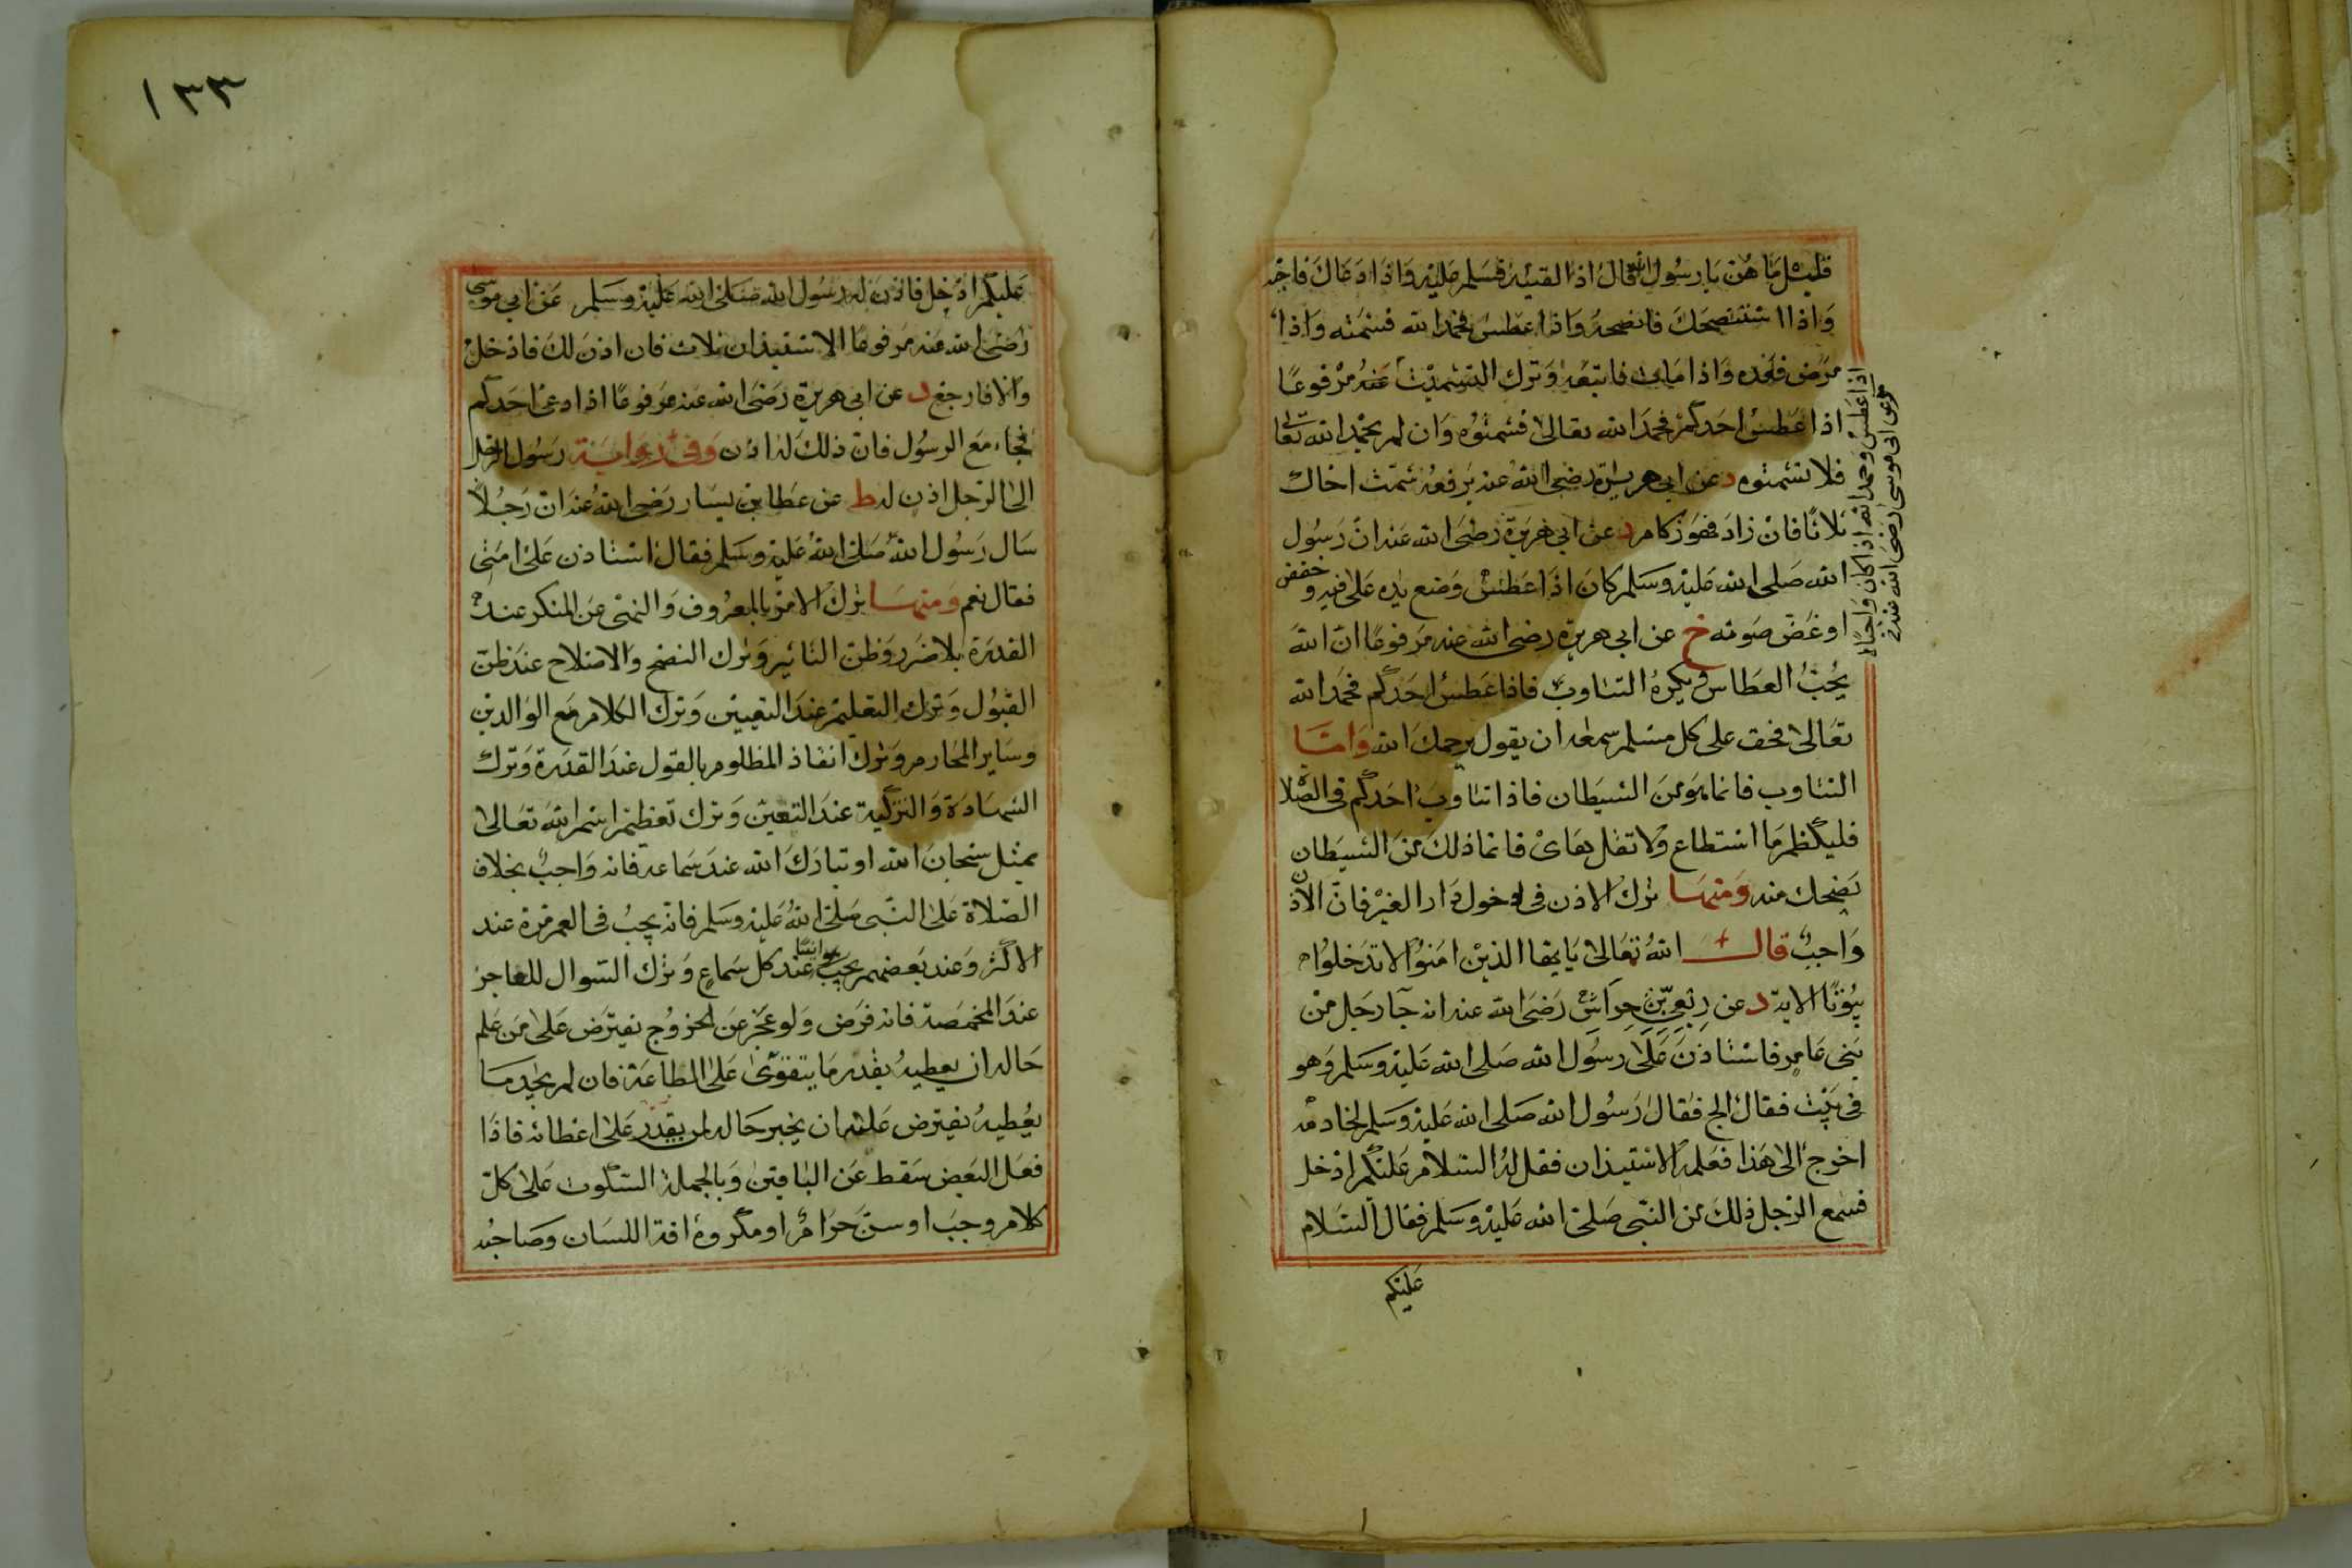 قيل ما هن يا رسول الله قال اذا لقيته فسلم عليه واذا دعاك فاجبه
واذا استنصحك فانصحه واذا عطس فحمد الله فشمته واذا
مرض فعده واذا مات فاتبعه وترك التشميت عنه مرفوعا
اذا عطس احدكم فحمد الله تعالى فشمتوه وان لم يحمد الله تعالى
فلا تشمتوه د عن ابي هريرة رضي الله عنه يرفعه شمت اخاك
ثلاثا فان زاد فهو زكام د عن ابي هريرة رضي الله عنه ان رسول
الله صلى الله عليه وسلم كان اذا عطس وضع يده على فيه وخفض
او غض صوته خ عن ابي هريرة رضي الله عنه مرفوعا ان الله
يحب العطاس ويكره التثاوب فاذا عطس احدكم فحمد الله
تعالى فحق على كل مسلم سمعه ان يقول يرحمك الله واما
التثاوب فانما هو من الشيطان فاذا تثاوب احدكم في الصلاة
فليكظم ما استطاع ولا تقل هاى فانما ذلك من الشيطان
يضحك منه ومنها ترك الاذن في دخول دار الغير فان الاذن
واجب قال الله تعالى يا يها الذين امنوا لا تدخلوا
بيوتا الاية د عن ربعي بن حراش رضي الله عنه انه جآ رجل من
بني عامر فاستاذن على رسول الله صلى الله عليه وسلم وهو
في بيت فقال الج فقال رسول الله صلى الله عليه وسلم لخادمه
اخرج الى هذا فعلمه الاستيذان فقل له السلام عليكم ادخل
فسمع الرجل ذلك من النبي صلى الله عليه وسلم فقال السلام
عليكم
اذا عطس وحمد الله اذا كان واجبا
م عن ابي موسى رضي الله عنه
١٣٣
عليكم ادخل فاذن له رسول الله صلى الله عليه وسلم عن ابي موسى
رضي الله عنه مرفوعا الاستيذان ثلاث فان اذن لك فادخل
والا فارجع د عن ابي هريرة رضي الله عنه مرفوعا اذا دعى احدكم
فجاء مع الرسول فان ذلك له اذن وفي رواية رسول الرجل
الى الرجل اذن له ط عن عطا بن يسار رضي الله عنه ان رجلا
سال رسول الله صلى الله عليه وسلم فقال استاذن على امي
فقال نعم ومنها ترك الامر بالمعروف والنهي عن المنكر عند
القدرة بلا ضرر وظن التاثير وترك النصح والاصلاح عند ظن
القبول وترك التعليم عند التعيين وترك الكلام مع الوالدين
وساير المحارم وترك انقاذ المظلوم بالقول عند القدرة وترك
الشهادة والتزكية عند التعين وترك تعظيم اسم الله تعالى
بمثل سبحان الله او تبارك الله عند سماعه فانه واجب بخلاف
الصلاة على النبي صلى الله عليه وسلم فانه يجب في العمر مرة عند
الاكثر وعند بعضهم يجب عند كل سماع وترك السوال للعاجز
عند المخمصة فانه فرض ولو عجز عن الخروج يفترض على من علم
حاله ان يعطيه بقدر ما يتقوى على الطاعة فان لم يجد ما
يعطيه يفترض عليه ان يخبر حاله لمن يقدر على اعطائه فاذا
فعل البعض سقط عن الباقين وبالجملة السكوت على كل
كلام وجب او سن حرام او مكروه افة اللسان وصاحبه